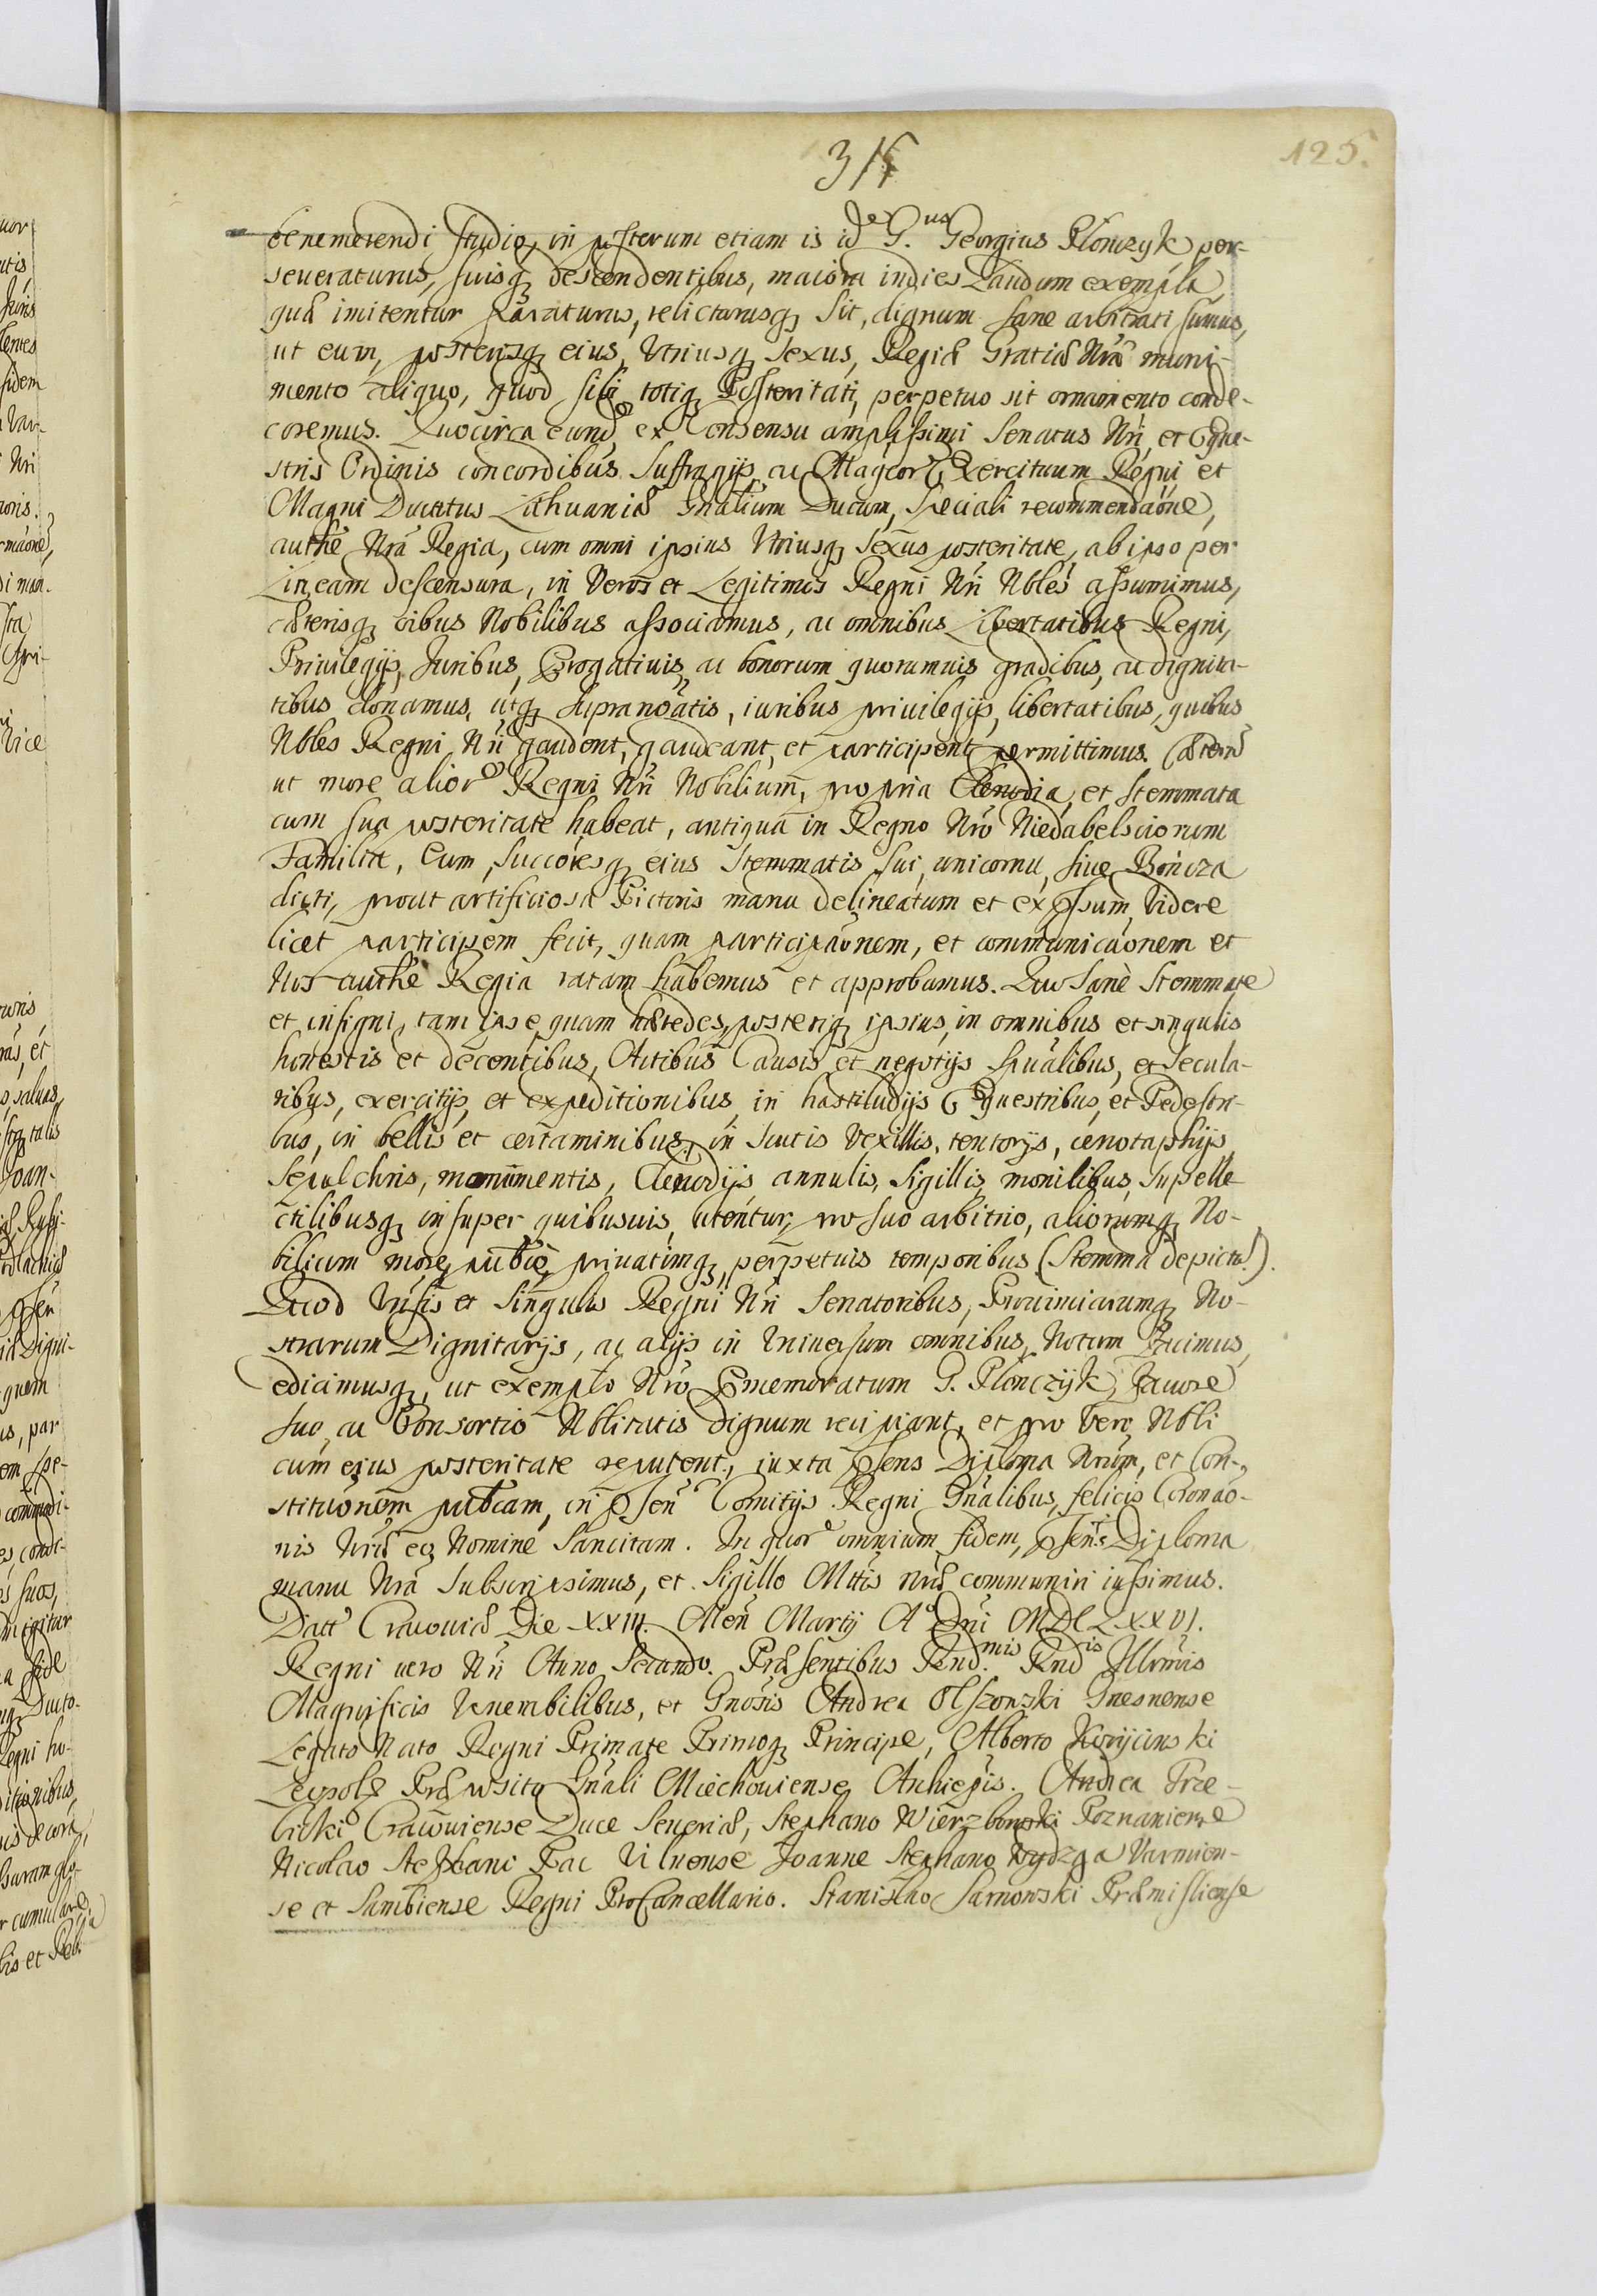 315
125.
benemerendi studio, in posterum etiam is idē G.us Georgius Płonczyk, per-
seueraturus, suisq, descendentibus, maiora indies Laudum exempla,
quæ imitentur paraturus, relicturusq, sit, dignum sane arbitrati sumus,
ut eum, posterisq, eius, Vtriusq, Sexus, Regiæ Gratiæ Nræ muni-
mento aliquo, quod sibi totiq, Posteritati, perpetuo sit ornamento conde-
coremus. Quocirca eund ex Consensu amplissimi Senatus Nri, et Eque-
stris Ordinis concordibus Suffragijs, ac Magcor Exercituum Regni, et
Magni Ducatus Lithuaniæ Gnalium Ducum, speciali recommendaõne,
authe Nrã Regia, cum omni ipsius Vtriusq, Sexus posteritate, ab ipso per
Lineam descensura, in Veros et Legitimos Regni Nri Nbles assumimus,
cæterisq, oibus Nobilibus associamus, ac omnibus Libertatibus Regni,
Priuilegijs, Juribus, Prrogatiuis, ac bonorum quorumuis gradibus, ac dignita-
tibus donamus, utq, supranoãtis, iuribus priuilegijs, libertatibus, quibus
Nbles Regni Nri gaudent, gaudeant, et participent permittimus. Cæterũ
ut more alior Regni Nri Nobilium, propria Clenodia, et stemmata
cum sua posteritate habeat, antiqua in Regno Nro Niedabelsciorum
Familia, Eum, succõresq, eius Stemmatis sui, unicornu, siue Boncza
dicti, prout artificiosa Pictoris manu delineatum et expssum, Videre
licet participem fecit, quam participãonem, et communicãonem et
Nos authe Regia ratam habemus et approbamus. Quo Sanè Stemmate
et insigni, tam ipse quam hæredes, posteriq, ipsius, in omnibus et singulis
honestis et decentibus, Actibus Causis et negotijs spũalibus, et secula-
ribus, exercitijs, et expeditionibus, in hastiludijs Equestribus, et Pedestri-
bus, in bellis et certaminibus, in scutis Vexillis, tentorijs, cenotaphijs,
Sepulchris, monumentis, Clenodijs annulis, Sigillis, monilibus, Supelle
ctilibusq, insuper quibusuis, utentur, pro suo arbitrio, aliorumq, No-
bilium more, publicè, priuatimq, perpetuis temporibus (Stemma depictũ).
Quod Vnisis et Singulis Regni Nri Senatoribus, Prouinciarumq, No-
strarum Dignitarijs, ac alijs in Vniuersum omnibus, Notum Facimus,
edicimusq, ut exemplo Nro Prmemoratum G. Płonczyk, Fauore
suo, ac Consortio Nblitatis dignum recipiant, et pro Vero Nbli
cum eius posteritate reputent, iuxta psens Diploma Nrum, et Con-
stitutionem publcam, in psen Comitijs Regni Gnalibus, felicis Coronao-
nis Nræ eo Nomine Sancitam. In quor omnium fidem, psens Diploma
manu Nrã Subscripsimus, et Sigillo Mttis Nræ communiri iussimus.
Datt Cracouiæ Die XXIII. Men Martij Ao Dni MDCLXXVI.
Regni uero Nri Anno Secundo. Præsentibus Rnd.mis Rnd.is Illrmis
Magnificis Venerabilibus, et Gnosis Andrea Olszowski Gnesnense
Legato Nato Regni Primate Primoq, Principe, Alberto Korycinski
Leopol Præposito Gnali Miechouiense, Archiepis. Andrea Trze-
bicki Cracouiense Duce Seueriæ, Stephano Wierzbowski Poznaniense
Nicolao Stephano Pac Vilnense Joanne Stephano Wydzga Varmien-
se et Sambiense Regni ProCancellario. Stanislao Sarnowski Præmisliense